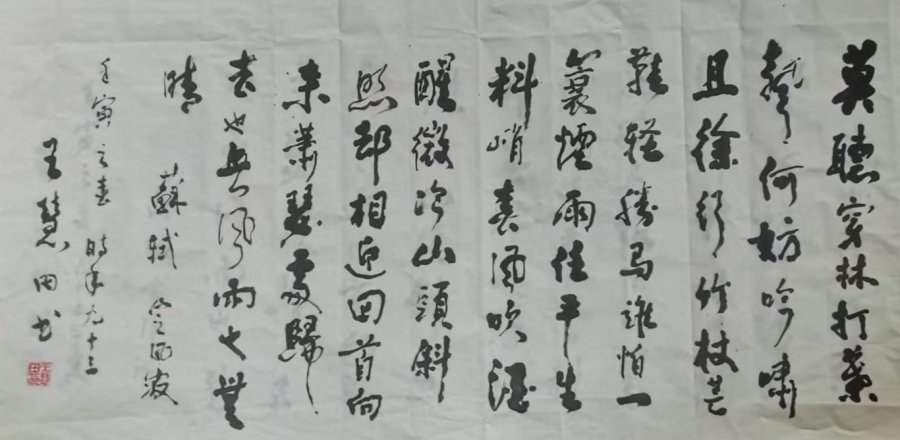 莫聽穿林打葉
聲何妨吟嘯
且徐行竹杖芒
鞋轻勝马誰怕一
蓑煙雨任平生
料峭春風吹酒
醒微冷山頭斜
照却相迎回首向
来蕭瑟處歸
去也無風雨也無
晴
蘇軾 定風波
壬寅立春 時年九十三
王慧田书